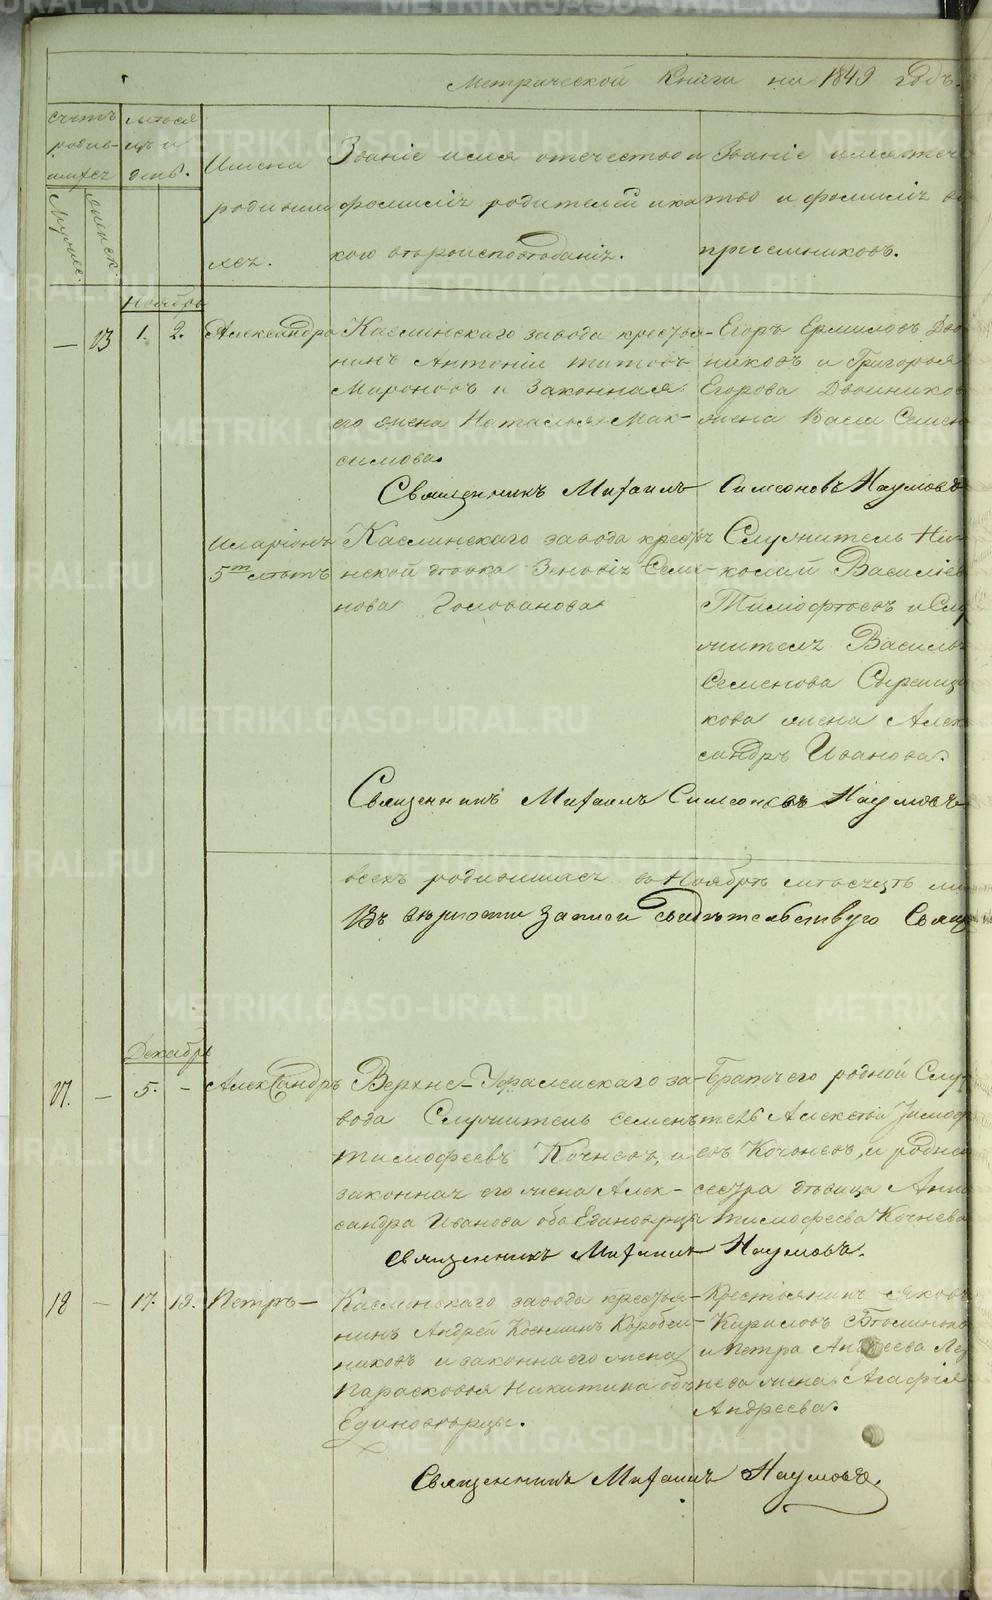 Метрической Книги на 1849 годъ.
счетъ
родив-
шихся
Мужск.
женск.
месяц
день.
Имена
родивши
хся.
Званіе имя отечество и
фамилія родителей и ка
кого вѣроисповѣданія.
Званіе имя отече
ство и фамилія во
пріемниковъ.
Ноябрь
— 13 1. 2. Александра
Каслинскаго завода крестья-
нинъ Антоній Титовъ
Мироновъ и Законная
его жена Наталья Мак-
симова.
Егоръ Ермиловъ Дво
никовъ и Григорья
Егорова Двойников
жена Васа Семен
Священникъ Михаилъ Симеоновъ Наумовъ
Иларіонъ
5ти лѣтъ
Каслинскаго завода крестья
нской дѣвка Зеновія Семе-
нова Голованова
Служитель Ни-
колай Василіев
Тимофѣевъ и Слу
жителя Василья
Семенова Сыреищи
кова жена Алек
сандръ Иванова.
Священникъ Михаилъ Симеоновъ Наумовъ
всехъ родившихся въ Ноябрѣ мѣсяцѣ
Въ вѣрности записи свидѣтельствую Свящ
Декабрь
17. — 5. — Александръ
Верхне-Уфалейскаго за-
вода Служитель Семенъ
Тимофеевъ Кочневъ, и
законная его жена Алек-
сандра Иванова оба Единоверцы
Братъ его родной Слу-
тель Алексѣй Тимоф
евъ Кочневъ, и родная
сестра дѣвица Анна
Тимофеева Кочнева
Священникъ Михаилъ Наумовъ.
18 — 17. 19. Петръ —
Каслинскаго завода крестья-
нинъ Андрей Козминъ Коробей-
никовъ и законна его жена
Парасковья Никитина оба
Единоверцы.
Крестьянинъ Яковъ
Кириловъ Блиновъ
и Петра Андреева Ле
нева жена Агафія
Андреева.
Священникъ Михаилъ Наумовъ.
METRIKI.GASO-URAL.RU